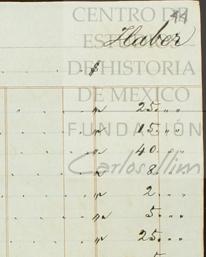 44
CENTRO DE
ESTUDIOS
Haber
DE HISTORIA
$
DE MEXICO
" 25...
" 15...
FUNDACIÓN
" 40...
Carlos Slim
" 8...
" 2...
" 5...
" 25...